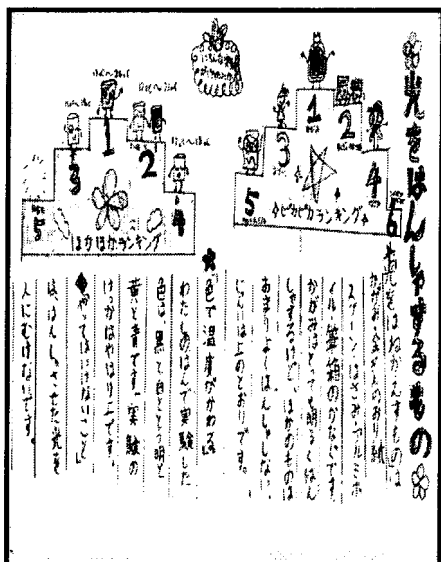 光をはんしゃするもの
光をはねかえすものは
かがみ・金ぞくのおり紙
スプーン・はさみ・アルミホ
イル・筆箱のかなぐです
かがみはとっても明るくはん
しゃするけど、ほかのものは
あまりよくはんしゃしない。
じゅんいは上のとおりです。
1
2
3
4
5
6
ピカピカランキング
色で温度がかわる。
わたしのはんで実験した
色は、黒と白ととう明と
黄と青です。実験の
けっかはやはり上です。
1
2
3
4
5
ぽかぽかランキング
やってはいけないこと
は、はんしゃさせた光を
人にむけないです。